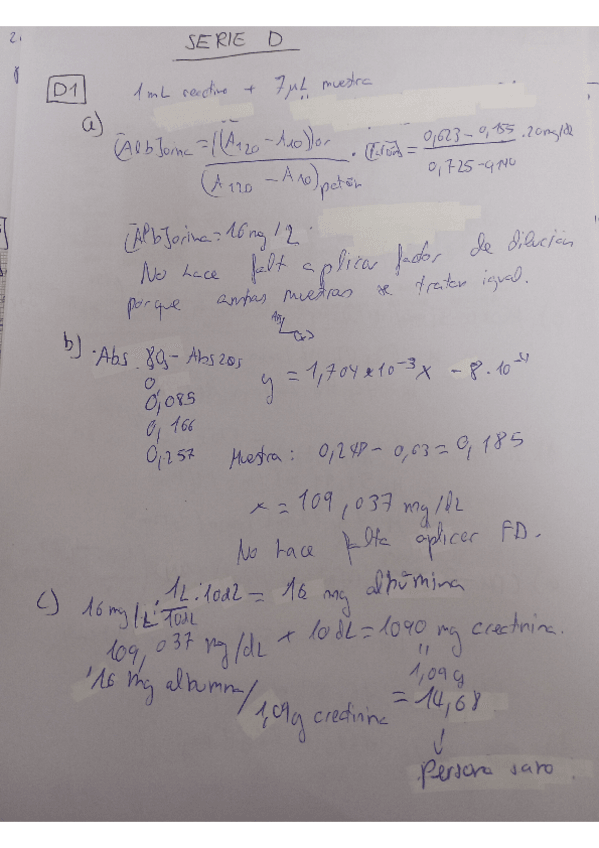 SERIE D
D1 1 mL reactivo + 7 μL muestra
a) [Alb]orina = ((A120 - A10))or / (A120 - A10)patón · [Patón] = 0,623 - 0,155 / 0,725 - · 20 mg/
[Alb]orina = 16 mg/L.
No hace falt aplicar factor de dilución
porque ambas muestras se tratan igual.
b) · Abs 80s - Abs 20s
y = 1,704 x 10⁻³ x - 8 · 10⁻⁴
0
0,085
0,166
0,257
Muestra: 0,248 - 0,63 = 0,185
x = 109,037 mg/dL
No hace falta aplicar FD.
c) 16 mg/L · 1L / 10dL · 10dL = 16 mg albúmina
109,037 mg/dL * 10 dL = 1090 mg creatinina.
1,09 g
16 mg albumina / 1,09g creatinina = 14,68
Persona sano.